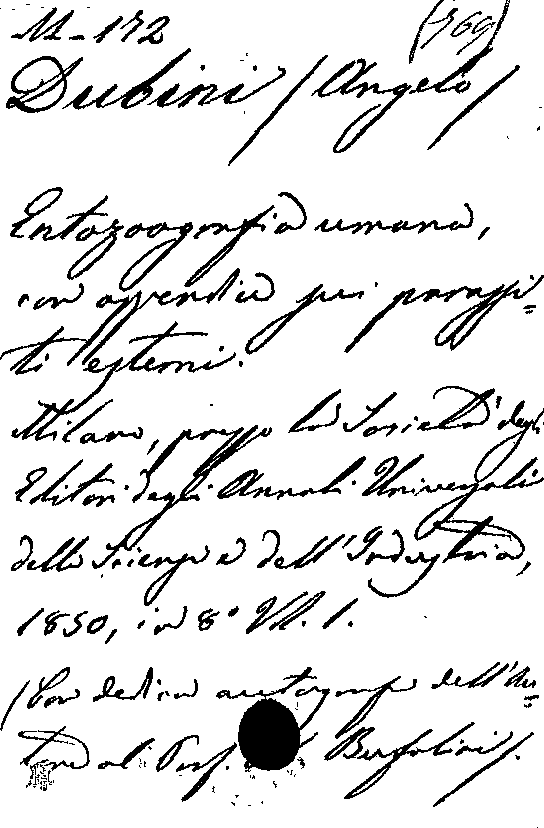 M-172 (769)
Dubini (Angelo)
Entozoografia umana,
con appendice sui parassi=
ti esterni.
Milano, presso la Società degli
Editori degli Annali Universali
delle Scienze e dell'Industria,
1850, in 8° Vol. 1.
(Con dedica autografa dell'Au=
tore al Prof. Bufalini).